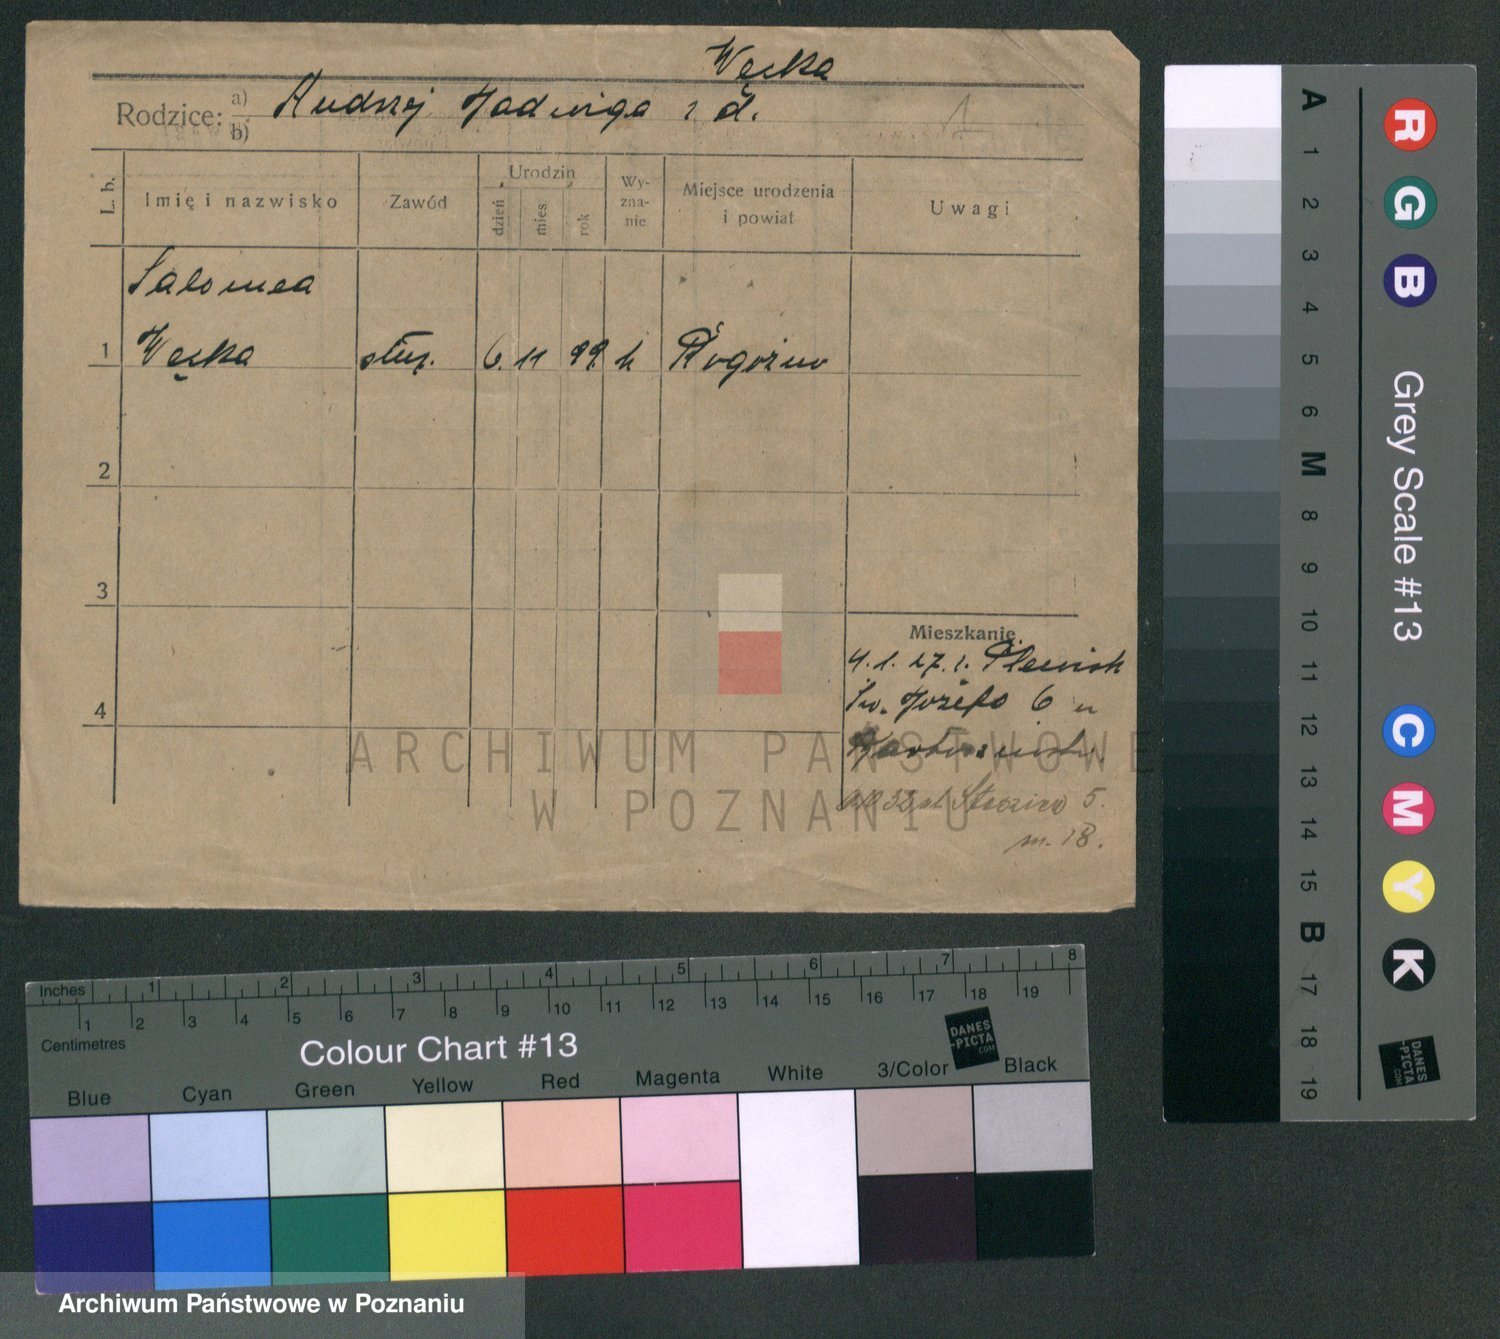 Węcka
Rodzice: a) Andrzej Jadwiga z d.
b)
1
L. b.
Imię i nazwisko
Zawód
Urodzin
dzień
mies
rok
Wy-
zna-
nie
Miejsce urodzenia
i powiat
Uwagi
Salomea
1 Węcka służ. 6. 11 99. k Rogoźno
2
3
4
Mieszkanie
4. 1. 27. z.
Św. Józefa 6 u
5.
m. 18.
ARCHIWUM PAŃSTWOWE
W POZNANIU
Inches 1 2 3 4 5 6 7 8
1 2 3 4 5 6 7 8 9 10 11 12 13 14 15 16 17 18 19
Centimetres
Colour Chart #13
DANES
-PICTA
.COM
Blue Cyan Green Yellow Red Magenta White 3/Color Black
A 1 2 3 4 5 6 M 8 9 10 11 12 13 14 15 B 17 18 19
R G B Grey Scale #13 C M Y K
DANES
-PICTA
.COM
Archiwum Państwowe w Poznaniu